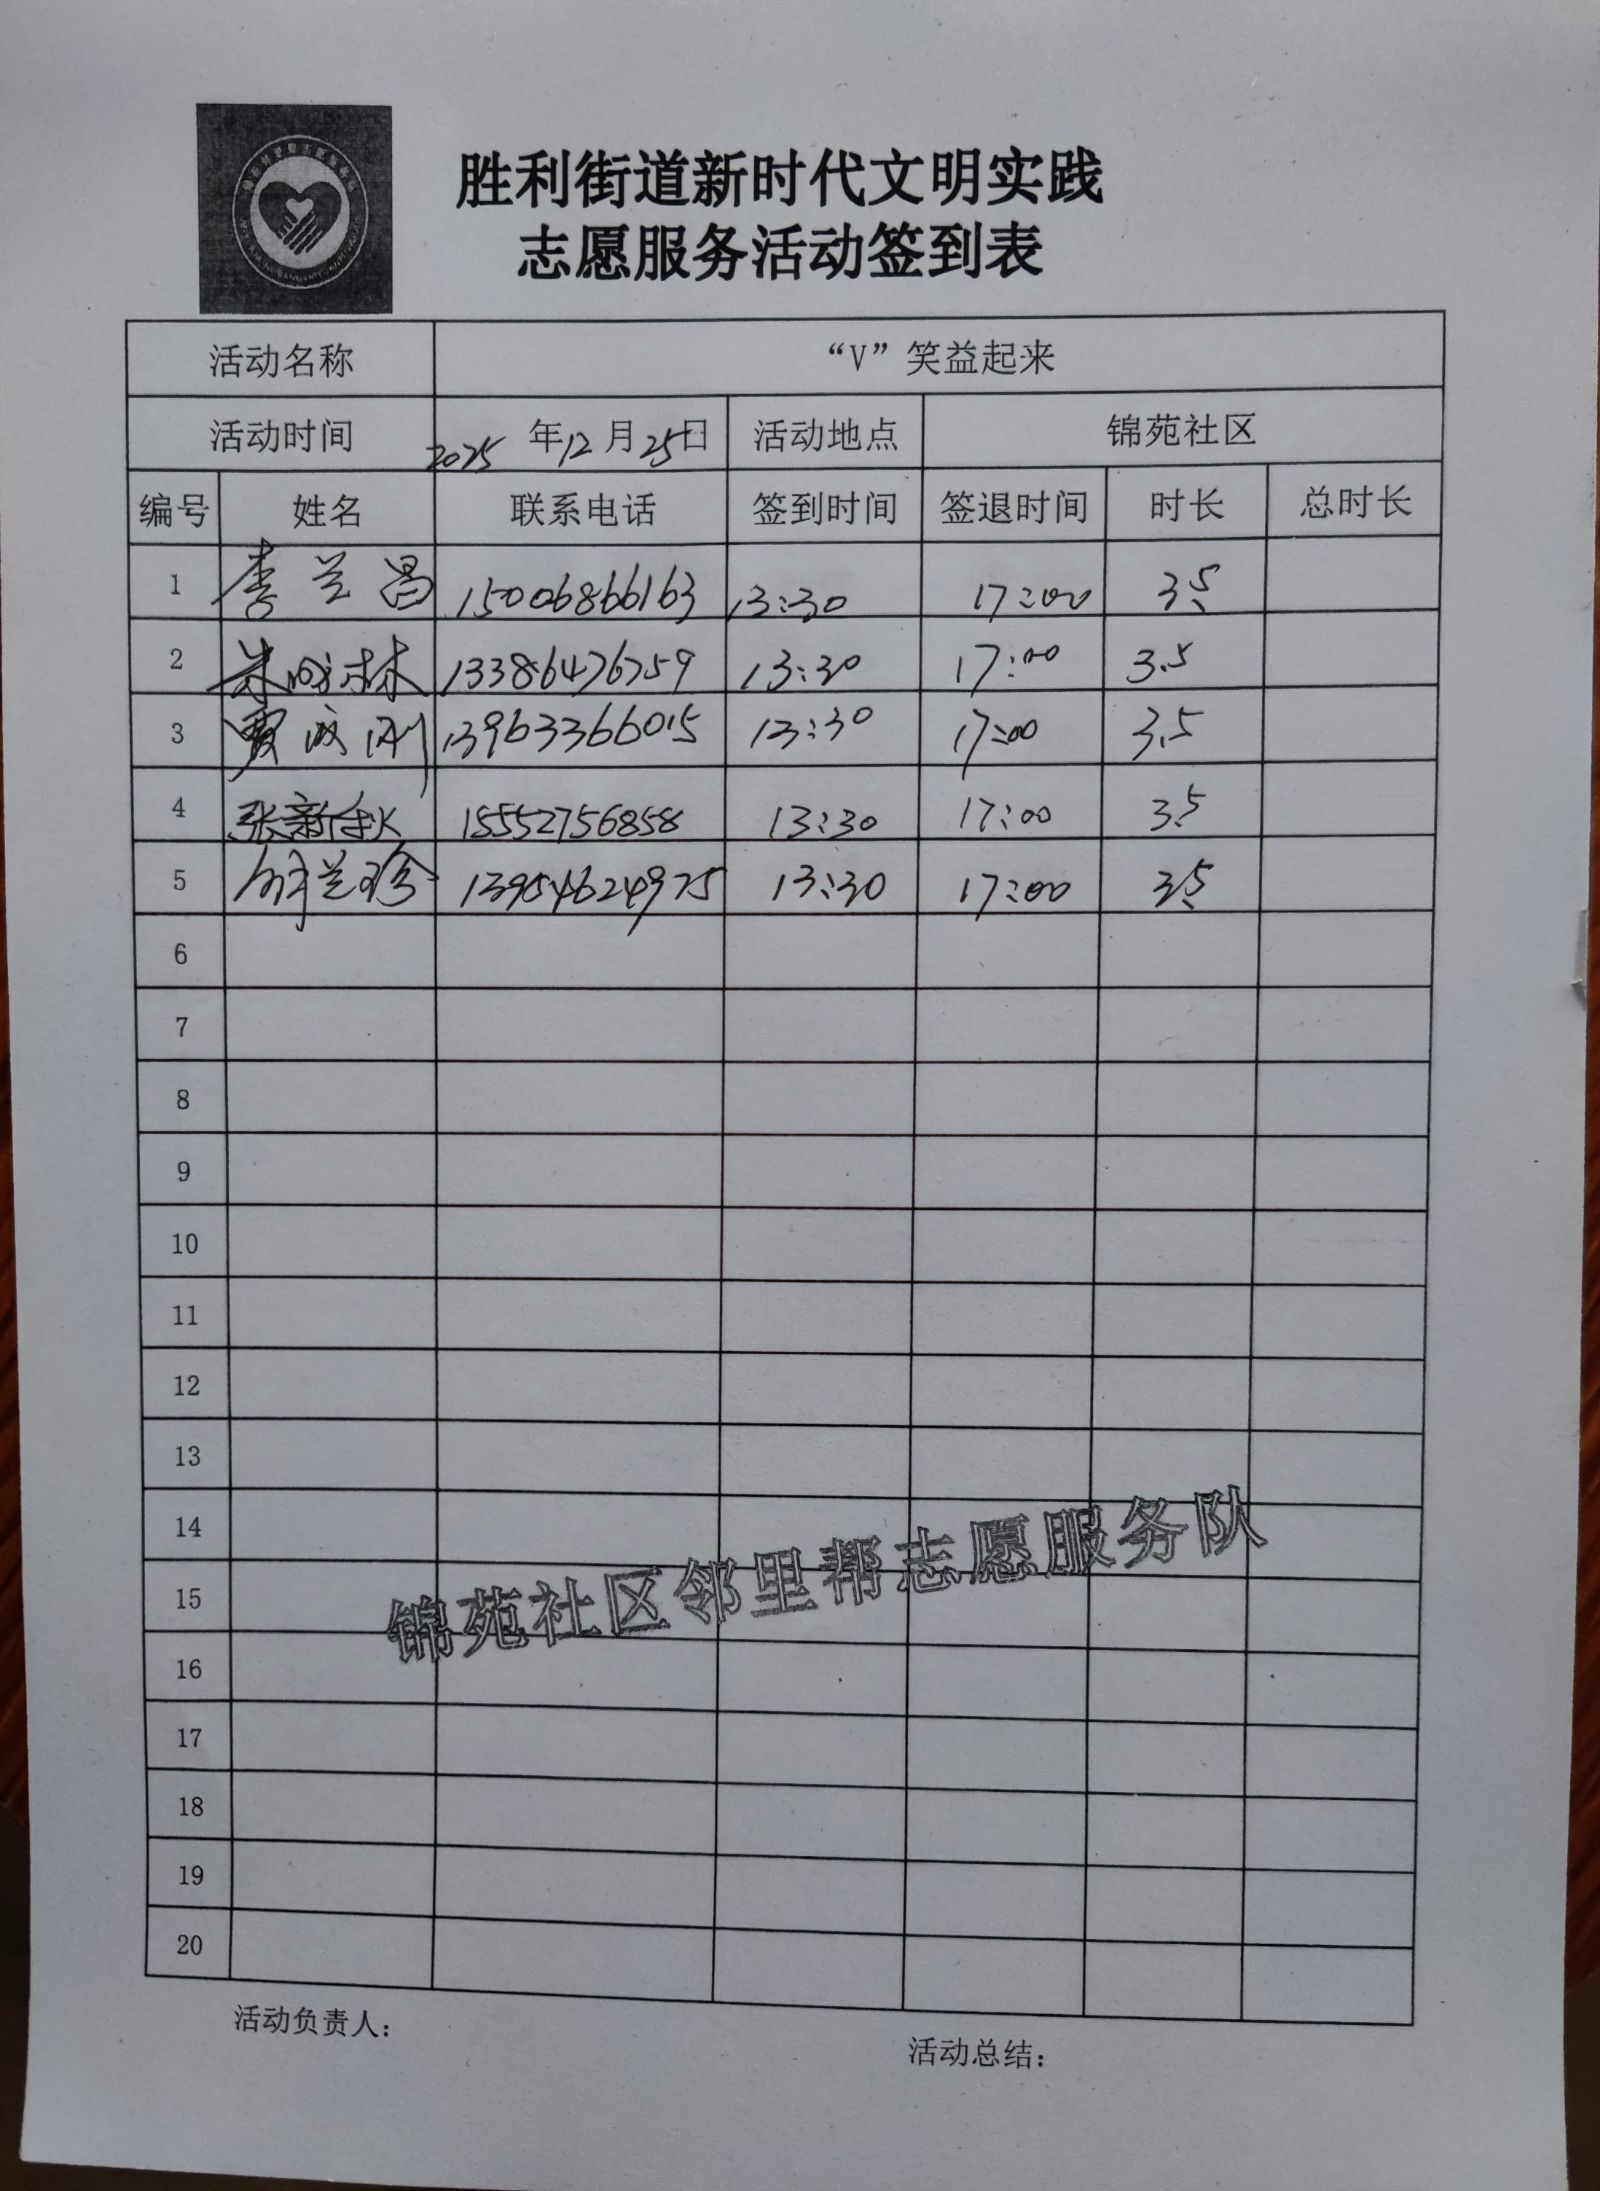 胜利街道新时代文明实践
志愿服务活动签到表
活动名称 “V”笑益起来
活动时间 2025 年 12 月 25 日 活动地点 锦苑社区
编号 姓名 联系电话 签到时间 签退时间 时长 总时长
1 李兰昌 15006866163 13:30 17:00 3.5
2 13386476759 13:30 17:00 3.5
3 贾成刚 13963366015 13:30 17:00 3.5
4 张新秋 15552756858 13:30 17:00 3.5
5 13954624975 13:30 17:00 3.5
6
7
8
9
10
11
12
13
14
15
16
17
18
19
20
锦苑社区邻里帮志愿服务队
活动负责人：
活动总结：